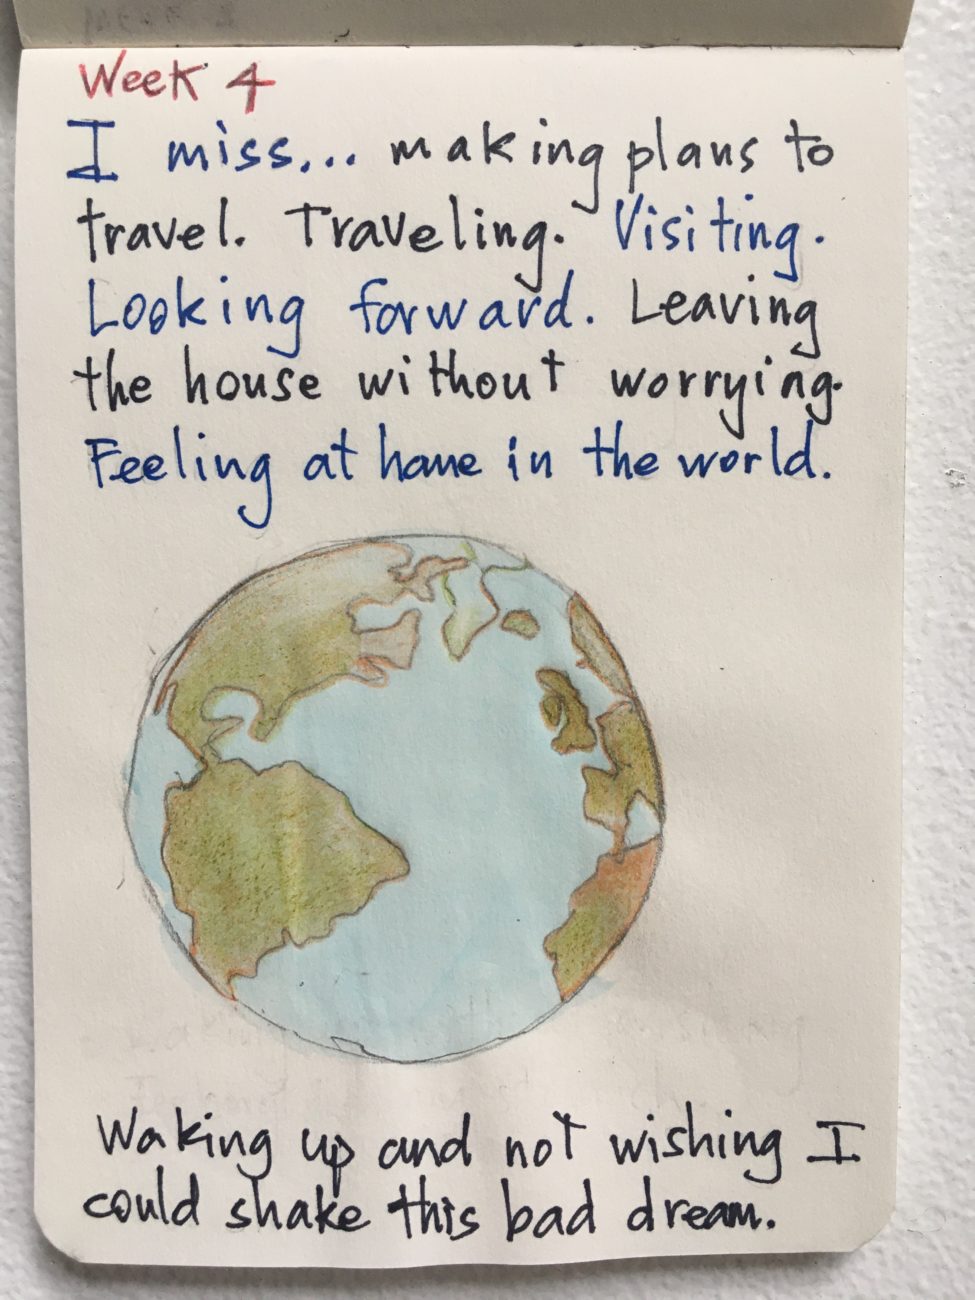 Week 4
I miss... making plans to
travel. Traveling. Visiting.
Looking forward. Leaving
the house without worrying.
Feeling at home in the world.
Waking up and not wishing I
could shake this bad dream.